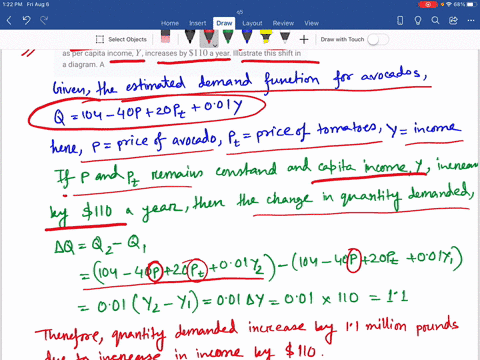 1:22 PM Fri Aug 6
68%
Home Insert Draw Layout Review View
Select Objects
Draw with Touch
as per capita income, Y, increases by $110 a year. Illustrate this shift in
a diagram. A
Given, the estimated demand function for avocados,
Q = 104 - 40P + 20Pt + 0.01Y
here, P = price of avocado, Pt = price of tomatoes, Y = income
If P and Pt remains constand and capita income, Y, increase
by $110 a year, then the change in quantity demanded,
ΔQ = Q2 - Q1
= (104 - 40P + 20Pt + 0.01Y2) - (104 - 40P + 20Pt + 0.01Y1)
= 0.01 (Y2 - Y1) = 0.01 ΔY = 0.01 × 110 = 1.1
Therefore, quantity demanded increase by 1.1 million pounds
due to increase in income by $110.